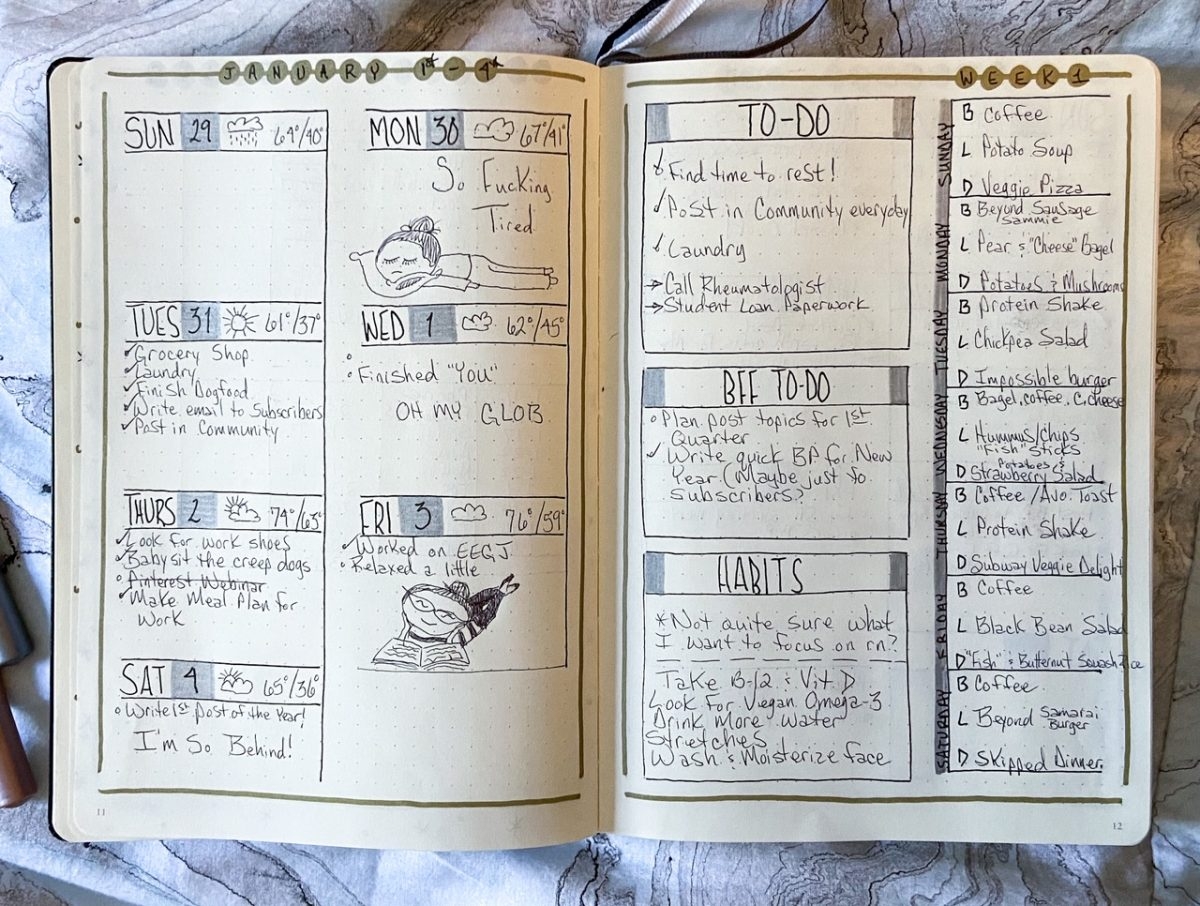 JANUARY 1st - 4th
SUN 29 64°/40°
MON 30 67°/41°
So Fucking
Tired
TUES 31 61°/37°
Grocery Shop
Laundry
Finish Dogfood
Write email to Subscribers
Post in Community
WED 1 62°/45°
Finished "You"
OH MY GLOB
THURS 2 74°/63°
Look for work shoes
Babysit the creep dogs
Pinterest Webinar
Make Meal Plan for
Work
FRI 3 76°/59°
Worked on EEGJ
Relaxed a little
SAT 4 65°/36°
Write 1st post of the Year!
I'm So Behind!
11
WEEK 1
TO-DO
Find time to rest!
Posit in Community everyday
Laundry
Call Rheumatologist
Student Loan Paperwork
BFF TO-DO
Plan post topics for 1st
Quarter
Write quick BP for New
Year (Maybe just to
subscribers?
HABITS
*Not quite sure what
I want to focus on rn?
Take B-12 & Vit D
Look for Vegan Omega-3
Drink More Water
Stretches
Wash & Moisterize face
SUNDAY
B Coffee
L Potato Soup
D Veggie Pizza
MONDAY
B Beyond Sausage
Sammie
L Pear & "Cheese" Bagel
D Potatoes & Mushrooms
TUESDAY
B Protein Shake
L Chickpea Salad
D Impossible burger
WEDNESDAY
B Bagel, coffee, C.cheese
L Hummus/Chips
"Fish" Sticks
Potatoes &
D Strawberry Salad
THURSDAY
B Coffee /Avo. Toast
L Protein Shake
D Subway Veggie Delight
FRIDAY
B Coffee
L Black Bean Salad
D "Fish" & Butternut Squash
SATURDAY
B Coffee
L Beyond Samarai
Burger
D Skipped Dinner
12